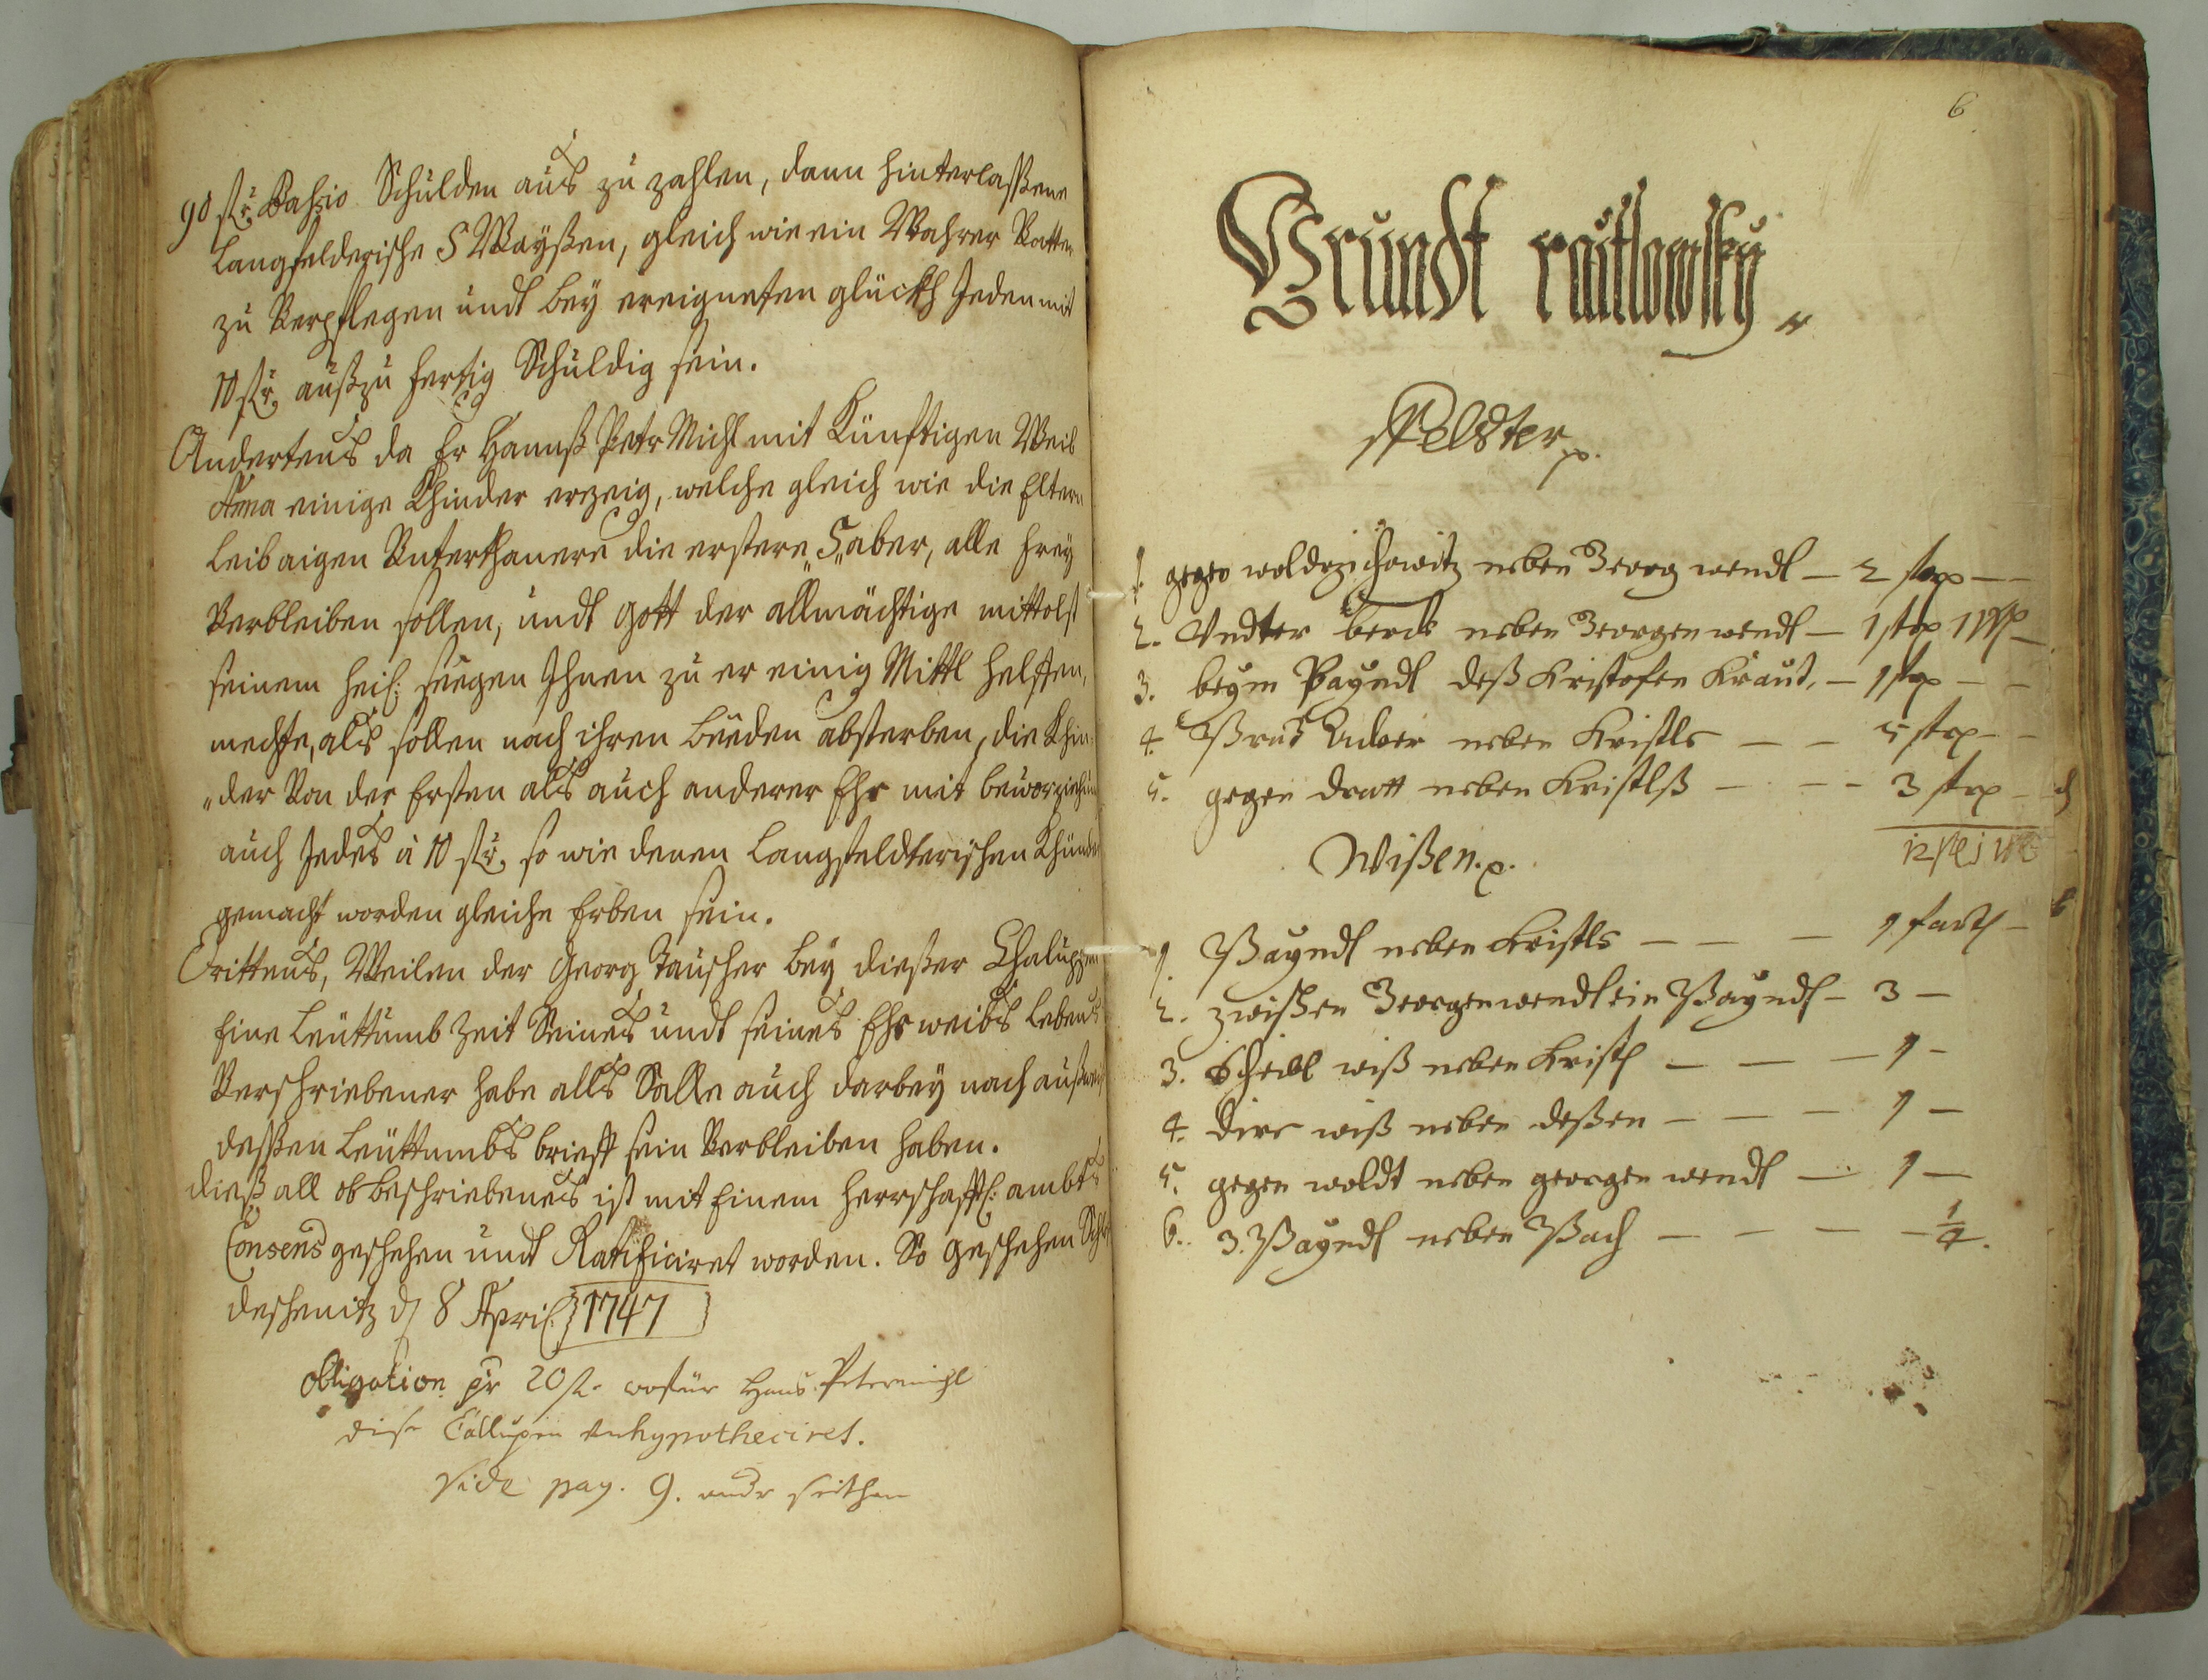 90 fr. Passio Schulden aus zu zahlen, dann hinterlaßene
Langfelderische 5 Wayßen, gleich wie ein Wahrer Vatter
zu Verpflegen undt bey ereigneten glückh Jeden mit
10 fr. außzu fertig Schuldig sein.
Andertens da Er Hannß Petr Michl mit Künftigen Weib
Anna einige Khinder erzeig, welche gleich wie die Eltern
Leib aigen Unterthanere die erstere 5 aber, alle frey
Verbleiben sollen, undt Gott der allmächtige mittelst
seinem heil: seegen Ihnen zu er einig Mittl helffen,
mechte, als sollen nach ihren beeden absterben, die Khin-
der Von der Ersten als auch anderer Ehe mit
auch Jedes à 10 fr. so wie denen Langfeldterischen Khinder
gemacht worden gleiche Erben sein.
Drittens, Weilen der Georg Tauscher bey dießer Chaluppen
Eine Leüttumb Zeit Seines undt seines Ehe weibs Lebens
Verschriebener habe alls Solle auch darbey nach
deßen Leüttumbs brieff sein Verbleiben haben.
dieß all ob beschriebenes ist mit Einem herrschafftl: ambts
Consens geschehen undt Ratificiret worden. So geschehen Schloß
deschenitz d 8 April 1747
Obligation pr 20 fr. wofür Hans Petermichl
dise Callupen verhypotheciret.
Vide pag. 9. andr seithen
6
Grundt rautlowsky
Feldter
1. gegen woldrzichowitz neben Georg wendl — 2 str
2. Undter berck neben Georgen wendl — 1 str 1
3. beym Payndl deß Kristofen Kraut — 1 str
4. neben Kristls — 5 str
5. gegen dratt neben Kristlß — 3 str
12 str 1
Wißen
1. Payndl neben Kristls — 1 fartl
2. zwischen Georgen wendl ein Payndl — 3 —
3. Scheibl wiß neben Kristl — 1 —
4. dire wiß neben deßen — 1 —
5. gegen woldt neben georgen wendl — 1 —
6. 3. Payndl neben Pach — 1/4.